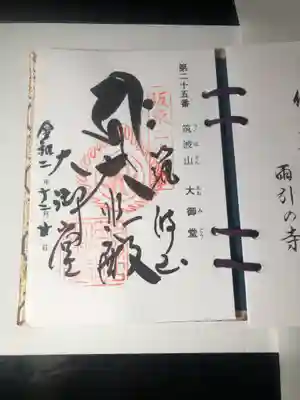 第二十五番
筑波山 大御堂
つくばさん おおみどう
筑波山
大悲殿
大御堂
令和二年十二月
雨引の寺